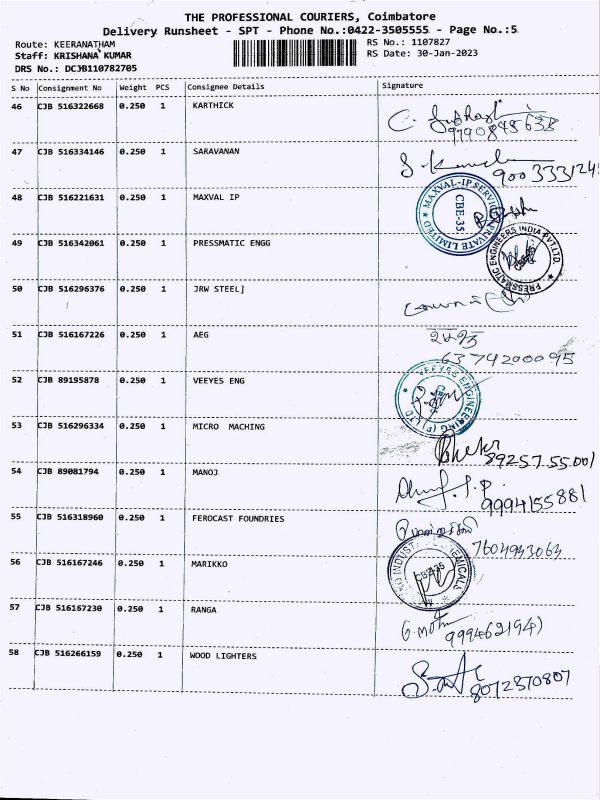 THE PROFESSIONAL COURIERS, Coimbatore
Delivery Runsheet - SPT - Phone No.:0422-3505555 - Page No.:5
Route: KEERANATHAM
RS No.: 1107827
Staff: KRISHANA KUMAR
RS Date: 30-Jan-2023
DRS No.: DCJB110782705
S No Consignment No Weight PCS Consignee Details Signature
46 CJB 516322668 0.250 1 KARTHICK
9190845638
47 CJB 516334146 0.250 1 SARAVANAN
900333124
48 CJB 516221631 0.250 1 MAXVAL IP
MAXVAL-IP SERVICES PRIVATE LIMITED
CBE-35.
49 CJB 516342061 0.250 1 PRESSMATIC ENGG
PRESSMATIC ENGINEERS INDIA PVT.LTD.
50 CJB 516296376 0.250 1 JRW STEEL]
51 CJB 516167226 0.250 1 AEG
6374200095
52 CJB 89195878 0.250 1 VEEYES ENG
VEEYES ENGINEERING (P) LTD
53 CJB 516296334 0.250 1 MICRO MACHING
89257 55001
54 CJB 89081794 0.250 1 MANOJ
9994155881
55 CJB 516318960 0.250 1 FEROCAST FOUNDRIES
7604943063
56 CJB 516167246 0.250 1 MARIKKO
57 CJB 516167230 0.250 1 RANGA
9994621941
58 CJB 516266159 0.250 1 WOOD LIGHTERS
8072370807